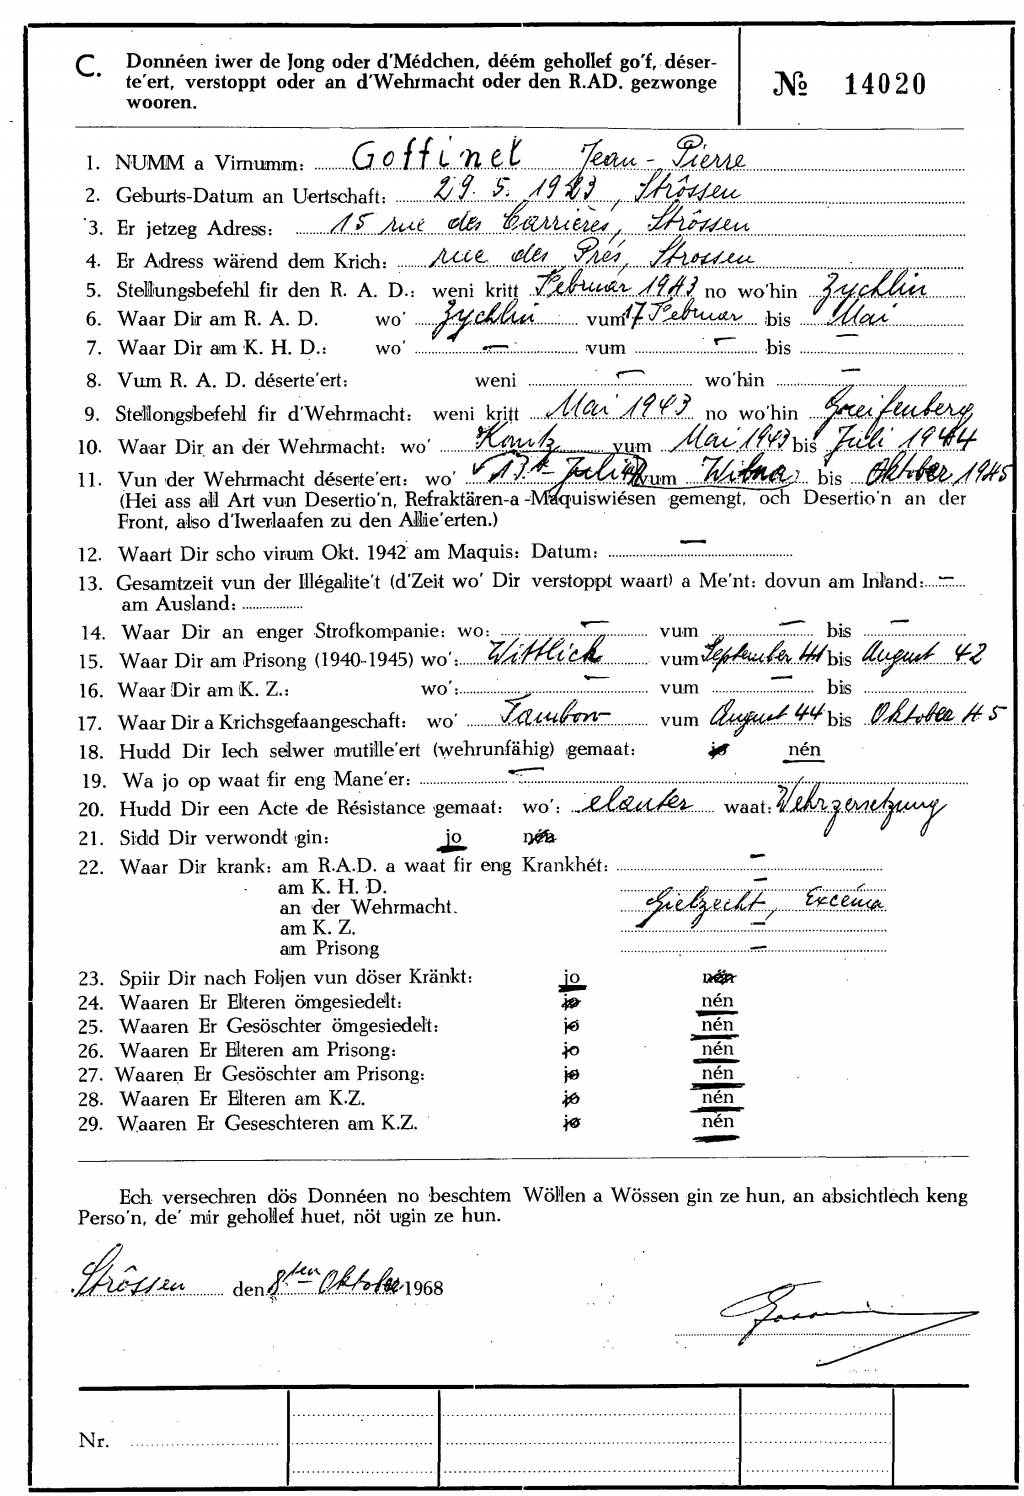 C. Donnéen iwer de Jong oder d'Médchen, déém gehollef go'f, déser-
te'ert, verstoppt oder an d'Wehrmacht oder den R.AD. gezwonge
wooren.
№ 14020
1. NUMM a Virnumm: Goffinet Jean-Pierre
2. Geburts-Datum an Uertschaft: 29. 5. 1923, Strôssen
3. Er jetzeg Adress: 15 rue des Carrières, Strôssen
4. Er Adress wärend dem Krich: rue des Prés, Strossen
5. Stellungsbefehl fir den R. A. D.: weni kritt Februar 1943 no wo'hin Zychlin
6. Waar Dir am R. A. D. wo' Zychlin vum 17 Februar bis Mai
7. Waar Dir am K. H. D.: wo' — vum — bis —
8. Vum R. A. D. déserte'ert: weni — wo'hin —
9. Stellongsbefehl fir d'Wehrmacht: weni kritt Mai 1943 no wo'hin Greifenberg
10. Waar Dir an der Wehrmacht: wo' Konitz vum Mai 1943 bis Juli 1944
11. Vun der Wehrmacht déserte'ert: wo' 13. Juli vum Wilna bis Oktober 1945
(Hei ass all Art vun Desertio'n, Refraktären-a-Maquiswiésen gemengt, och Desertio'n an der
Front, also d'Iwerlaafen zu den Allie'erten.)
12. Waart Dir scho virum Okt. 1942 am Maquis: Datum: —
13. Gesamtzeit vun der Illégalite't (d'Zeit wo' Dir verstoppt waart) a Me'nt: dovun am Inland: —
am Ausland:
14. Waar Dir an enger Strofkompanie: wo: — vum — bis —
15. Waar Dir am Prisong (1940-1945) wo': Wittlick vum September 41 bis August 42
16. Waar Dir am K. Z.: wo': — vum — bis —
17. Waar Dir a Krichsgefaangeschaft: wo' Tambow vum August 44 bis Oktober 45
18. Hudd Dir Iech selwer mutille'ert (wehrunfähig) gemaat: jo nén
19. Wa jo op waat fir eng Mane'er: —
20. Hudd Dir een Acte de Résistance gemaat: wo': waat: Wehrzersetzung
21. Sidd Dir verwondt gin: jo nén
22. Waar Dir krank: am R.A.D. a waat fir eng Krankhét: —
am K. H. D. —
an der Wehrmacht. Gielzecht, Excéma
am K. Z. —
am Prisong —
23. Spiir Dir nach Foljen vun döser Kränkt: jo nén
24. Waaren Er Elteren ömgesiedelt: jo nén
25. Waaren Er Gesöschter ömgesiedelt: jo nén
26. Waaren Er Elteren am Prisong: jo nén
27. Waaren Er Gesöschter am Prisong: jo nén
28. Waaren Er Elteren am K.Z. jo nén
29. Waaren Er Geseschteren am K.Z. jo nén
Ech versechren dös Donnéen no beschtem Wöllen a Wössen gin ze hun, an absichtlech keng
Perso'n, de' mir gehollef huet, nöt ugin ze hun.
Strôssen den 8ten Oktober 1968
Nr.